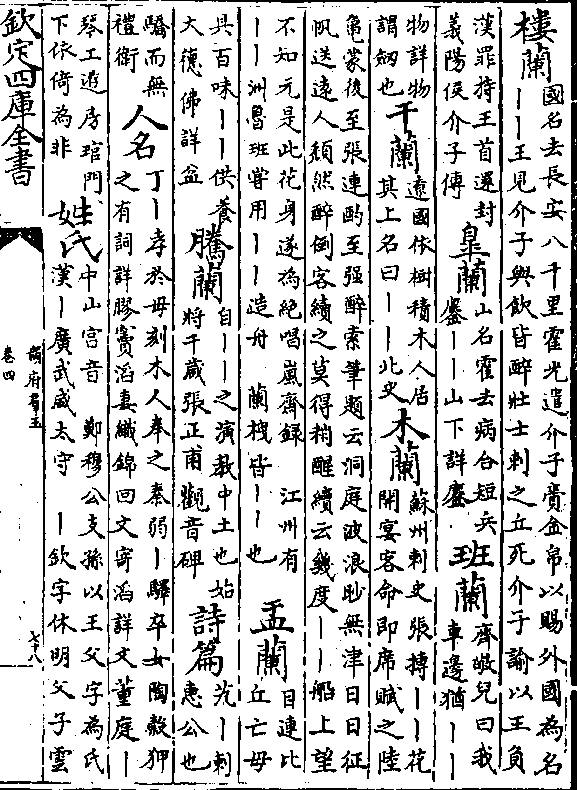 樓蘭
國名去長安八千里霍光遣介子賫金帛以賜外國為名
——王見介子與飲皆醉壯士刺之立死介子諭以王負
漢罪持王首還封
義陽侯介子傳
臯蘭
山名霍去病合短兵
鏖——山下詳鏖
班蘭
齊敬兒曰我
車邊猶——
物詳物
謂劒也
干蘭
遼國依樹積木人居
其上名曰——北史
木蘭
蘇州刺史張搏——花
開宴客命即席賦之陸
龜蒙後至張連酌至强醉索筆題云洞庭波浪眇無津日日征
帆送遠人頹然醉倒客續之莫得稍醒續云幾度——船上望
不知元是此花身遂為絶唱嵐齋録 江州有
——洲魯班嘗用——造舟 蘭栧皆——也
盂蘭
目連比
丘亡母
具百味——供養
大德佛詳盆
騰蘭
自——之演教中土也始
將千歲張正甫觀音碑
詩篇
芄—刺
惠公也
驕而無
禮衛
人名
丁—孝於母刻木人奉之 秦弱—驛卒女陶穀狎
之有詞詳膠 竇滔妻織錦回文寄滔詳文 董庭—
琴工遊房琯門
下依倚為非
姓氏
中山宫音 鄭穆公支孫以王父字為氏
漢—廣武威太守 —欽字休明父子雲
欽定四庫全書
韻府羣玉
卷四
七十八